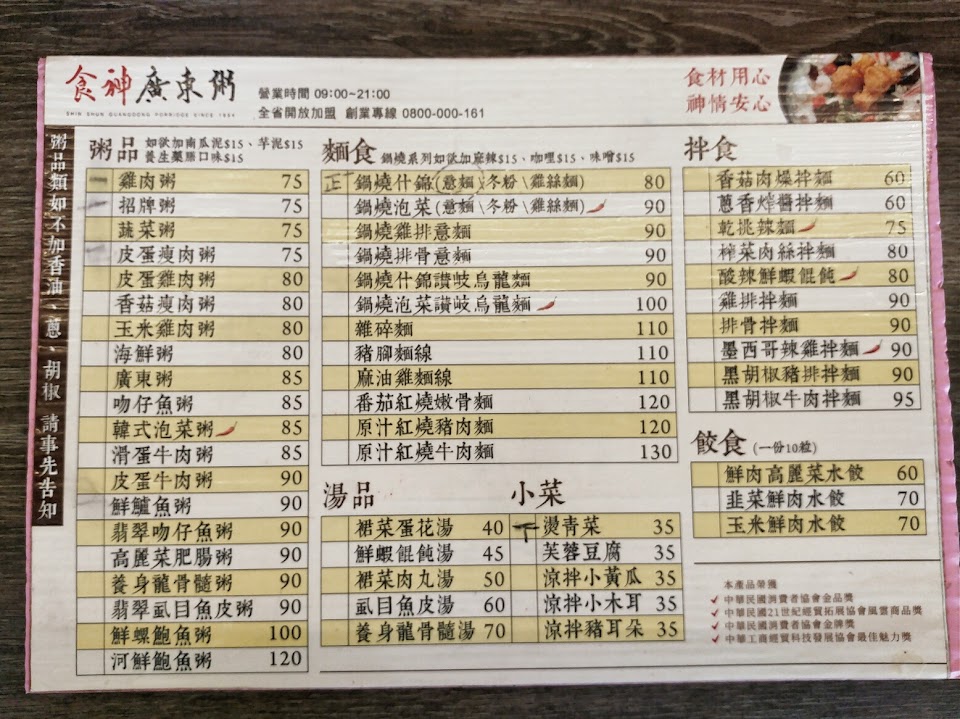 食神廣東粥
SHIN SHUN GUANGDONG PORRIDGE SINCE 1994
營業時間 09:00~21:00
全省開放加盟 創業專線 0800-000-161
食材用心
神情安心
粥品類如不加香油、蔥、胡椒 請事先告知
粥品 如欲加南瓜泥$15、芋泥$15
養生藥膳口味$15
一 雞肉粥 75
一 招牌粥 75
蔬菜粥 75
皮蛋瘦肉粥 75
皮蛋雞肉粥 80
香菇瘦肉粥 80
玉米雞肉粥 80
海鮮粥 80
廣東粥 85
吻仔魚粥 85
韓式泡菜粥 85
滑蛋牛肉粥 85
皮蛋牛肉粥 90
鮮鱸魚粥 90
翡翠吻仔魚粥 90
高麗菜肥腸粥 90
養身龍骨髓粥 90
翡翠虱目魚皮粥 90
鮮螺鮑魚粥 100
河鮮鮑魚粥 120
麵食 鍋燒系列如欲加麻辣$15、咖哩$15、味噌$15
正 鍋燒什錦(意麵\冬粉\雞絲麵) 80
鍋燒泡菜(意麵\冬粉\雞絲麵) 90
鍋燒雞排意麵 90
鍋燒排骨意麵 90
鍋燒什錦讚岐烏龍麵 90
鍋燒泡菜讚岐烏龍麵 100
雜碎麵 110
豬腳麵線 110
麻油雞麵線 110
番茄紅燒嫩骨麵 120
原汁紅燒豬肉麵 120
原汁紅燒牛肉麵 130
湯品
裙菜蛋花湯 40
鮮蝦餛飩湯 45
裙菜肉丸湯 50
虱目魚皮湯 60
養身龍骨髓湯 70
小菜
下 燙青菜 35
芙蓉豆腐 35
涼拌小黃瓜 35
涼拌小木耳 35
涼拌豬耳朵 35
拌食
香菇肉燥拌麵 60
蔥香炸醬拌麵 60
乾挑辣麵 75
榨菜肉絲拌麵 80
酸辣鮮蝦餛飩 80
雞排拌麵 90
排骨拌麵 90
墨西哥辣雞拌麵 90
黑胡椒豬排拌麵 90
黑胡椒牛肉拌麵 95
餃食 (一份10粒)
鮮肉高麗菜水餃 60
韭菜鮮肉水餃 70
玉米鮮肉水餃 70
本產品榮獲
中華民國消費者協會金品獎
中華民國21世紀經貿拓展協會風雲商品獎
中華民國消費者協會金牌獎
中華工商經貿科技發展協會最佳魅力獎